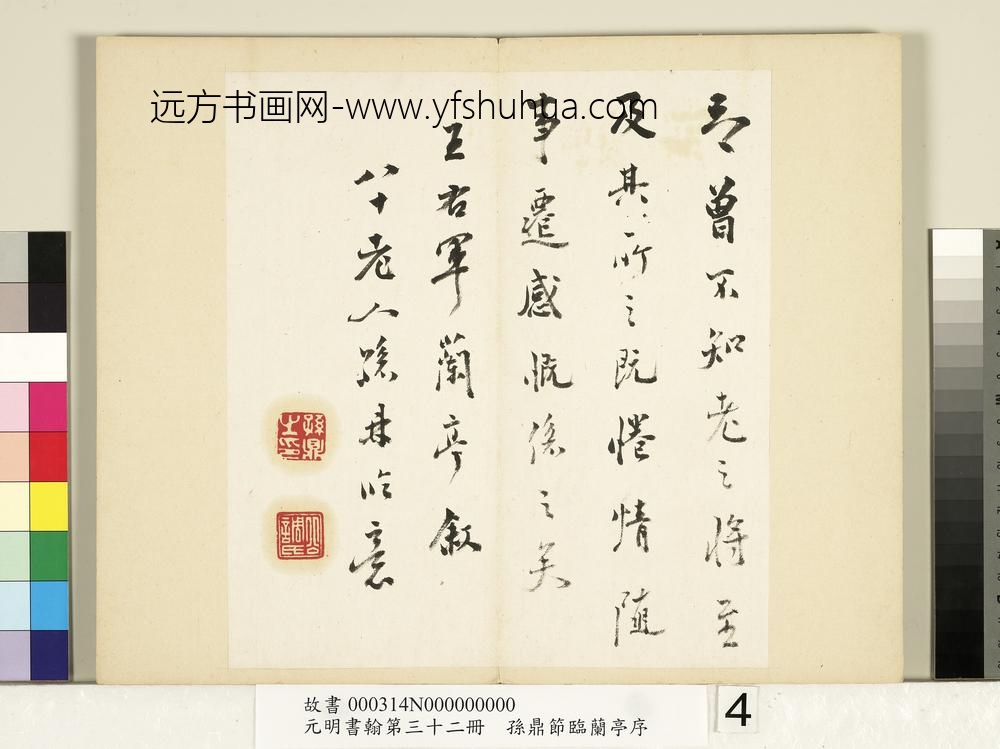 远方书画网-www.yfshuhua.com
足曾不知老之將至
及其所之既惓情隨
事遷感慨係之矣
王右軍蘭亭敘
八十老人孫鼎臨意
孫鼎
士印
故書 000314N000000000
元明書翰第三十二冊 孫鼎節臨蘭亭序
4